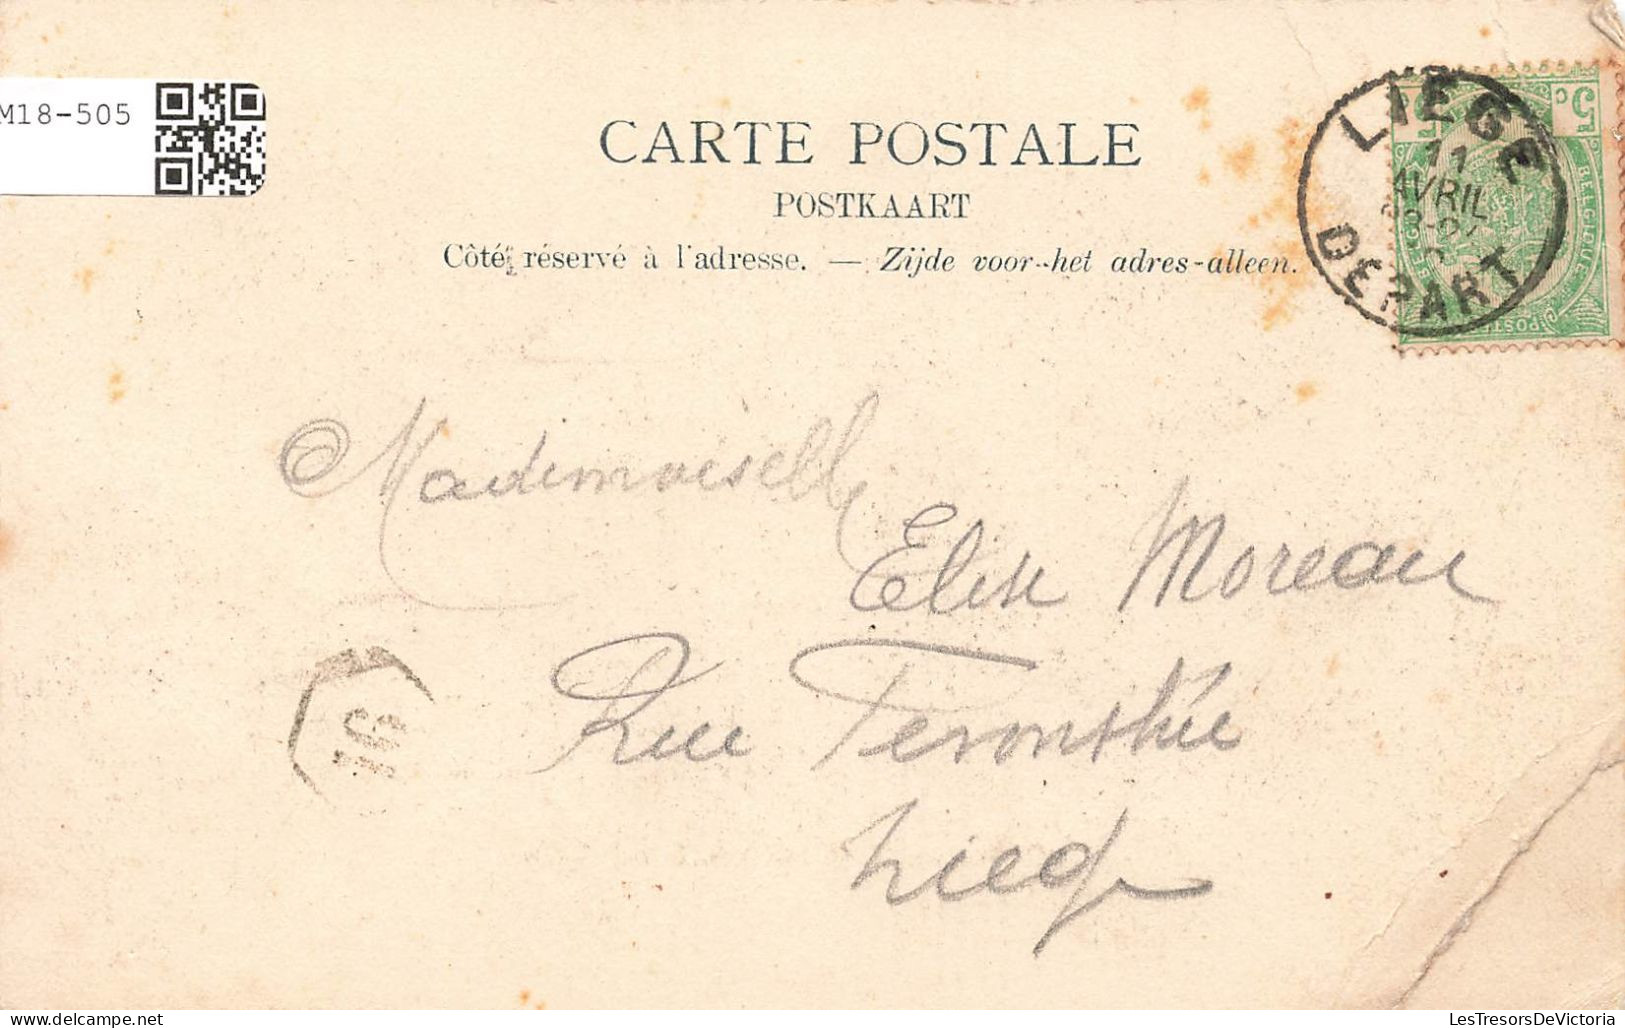 M18-505
CARTE POSTALE
POSTKAART
Côté réservé à l'adresse. — Zijde voor het adres alleen.
LIEGE
11
AVRIL
DEPART
5 c 5
BELGIQUE
POSTES
Mademoiselle
Elise Moreau
Rue
Liege
16
LesTresorsDeVictoria